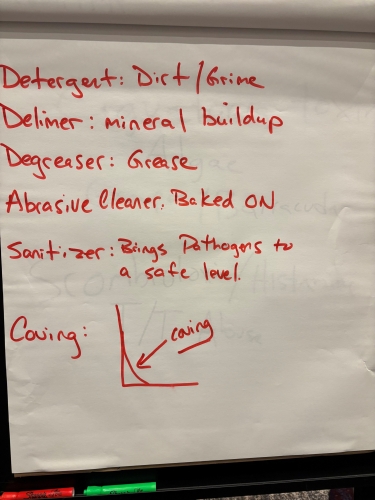 Detergent: Dirt/Grime
Delimer: mineral buildup
Degreaser: Grease
Abrasive Cleaner: Baked ON
Sanitizer: Brings Pathogens to
a safe level.
Coving:
coving